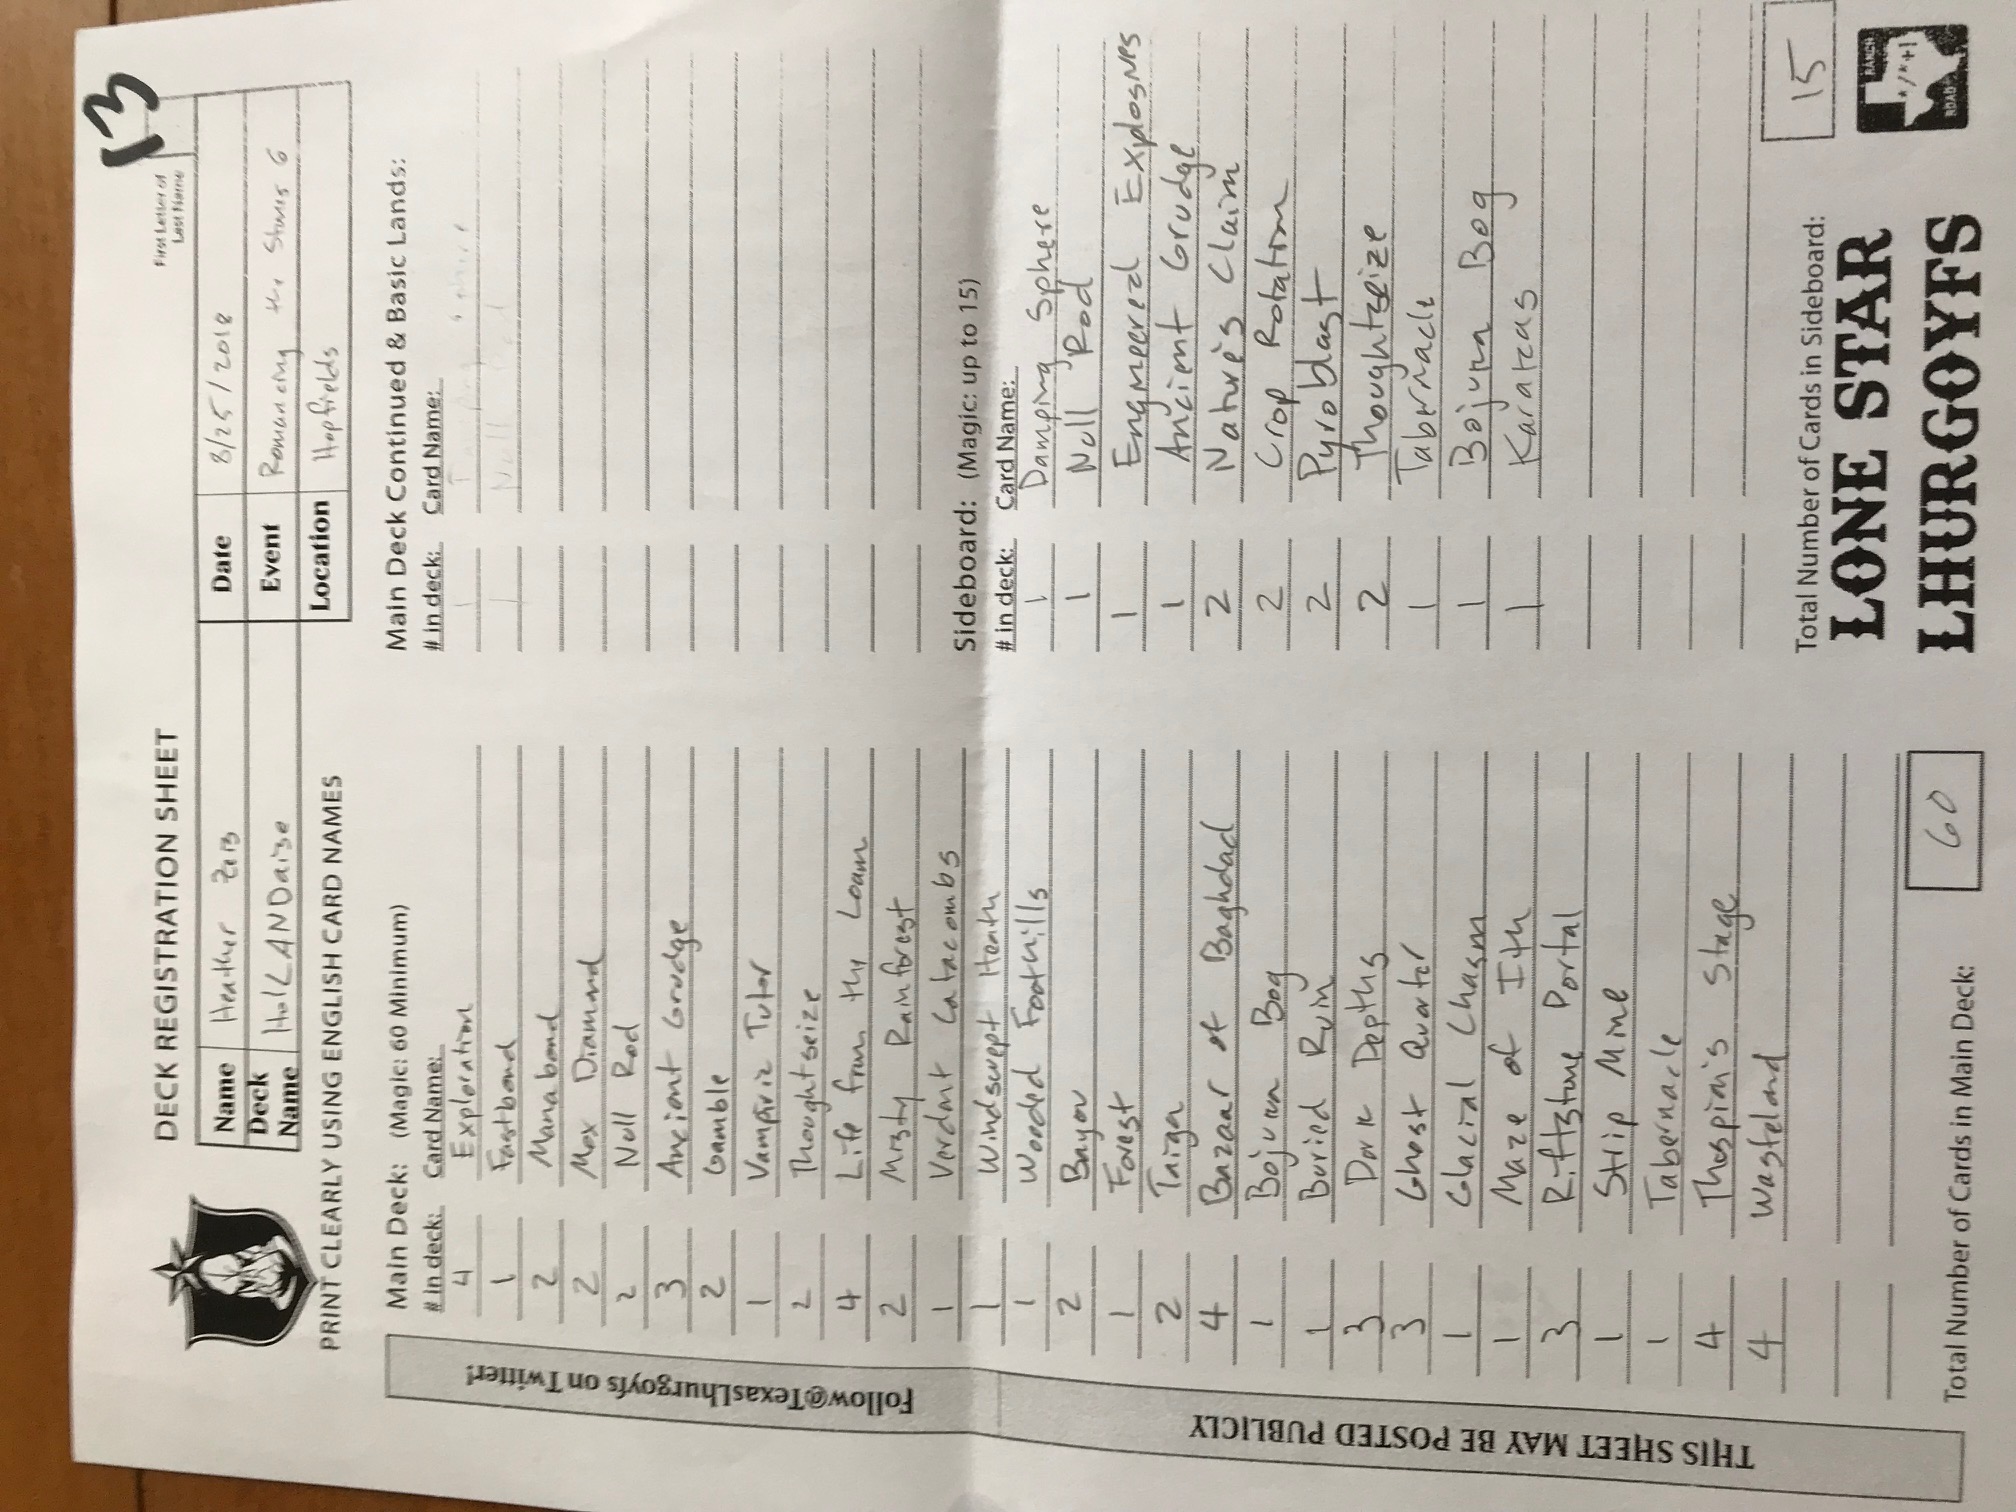 13
DECK REGISTRATION SHEET
First Letter of
Last Name
Name Heather Zeis
Date 8/25/2018
Deck Name HolLANDaise
Event Romancing the Stones 6
Location Hopfields
PRINT CLEARLY USING ENGLISH CARD NAMES
Follow@TexasLhurgoyfs on Twitter!
THIS SHEET MAY BE POSTED PUBLICLY
Main Deck: (Magic: 60 Minimum)
# in deck: Card Name:
4 Exploration
1 Fastbond
2 Manabond
2 Mox Diamond
2 Null Rod
3 Ancient Grudge
2 Gamble
1 Vampiric Tutor
2 Thoughtseize
4 Life from the Loam
2 Misty Rainforest
1 Verdant Catacombs
1 Windswept Heath
1 Wooded Foothills
2 Bayou
1 Forest
2 Taiga
4 Bazaar of Baghdad
1 Bojuka Bog
1 Buried Ruin
3 Dark Depths
3 Ghost Quarter
1 Glacial Chasm
1 Maze of Ith
3 Riftstone Portal
1 Strip Mine
1 Tabernacle
4 Thespian's Stage
4 Wasteland
Total Number of Cards in Main Deck: 60
Main Deck Continued & Basic Lands:
# in deck: Card Name:
1 Damping Sphere
1 Null Rod
Sideboard: (Magic: up to 15)
# in deck: Card Name:
1 Damping Sphere
1 Null Rod
1 Engineered Explosives
1 Ancient Grudge
2 Nature's Claim
2 Crop Rotation
2 Pyroblast
2 Thoughtseize
1 Tabernacle
1 Bojuka Bog
1 Karakas
Total Number of Cards in Sideboard: 15
LONE STAR
LHURGOYFS
RANCH
*/*+1
ROAD